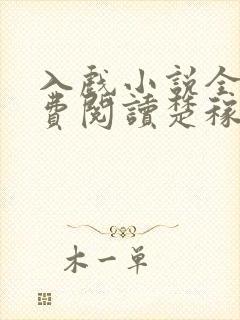 入戲小說全
費閱讀楚稼
木一單